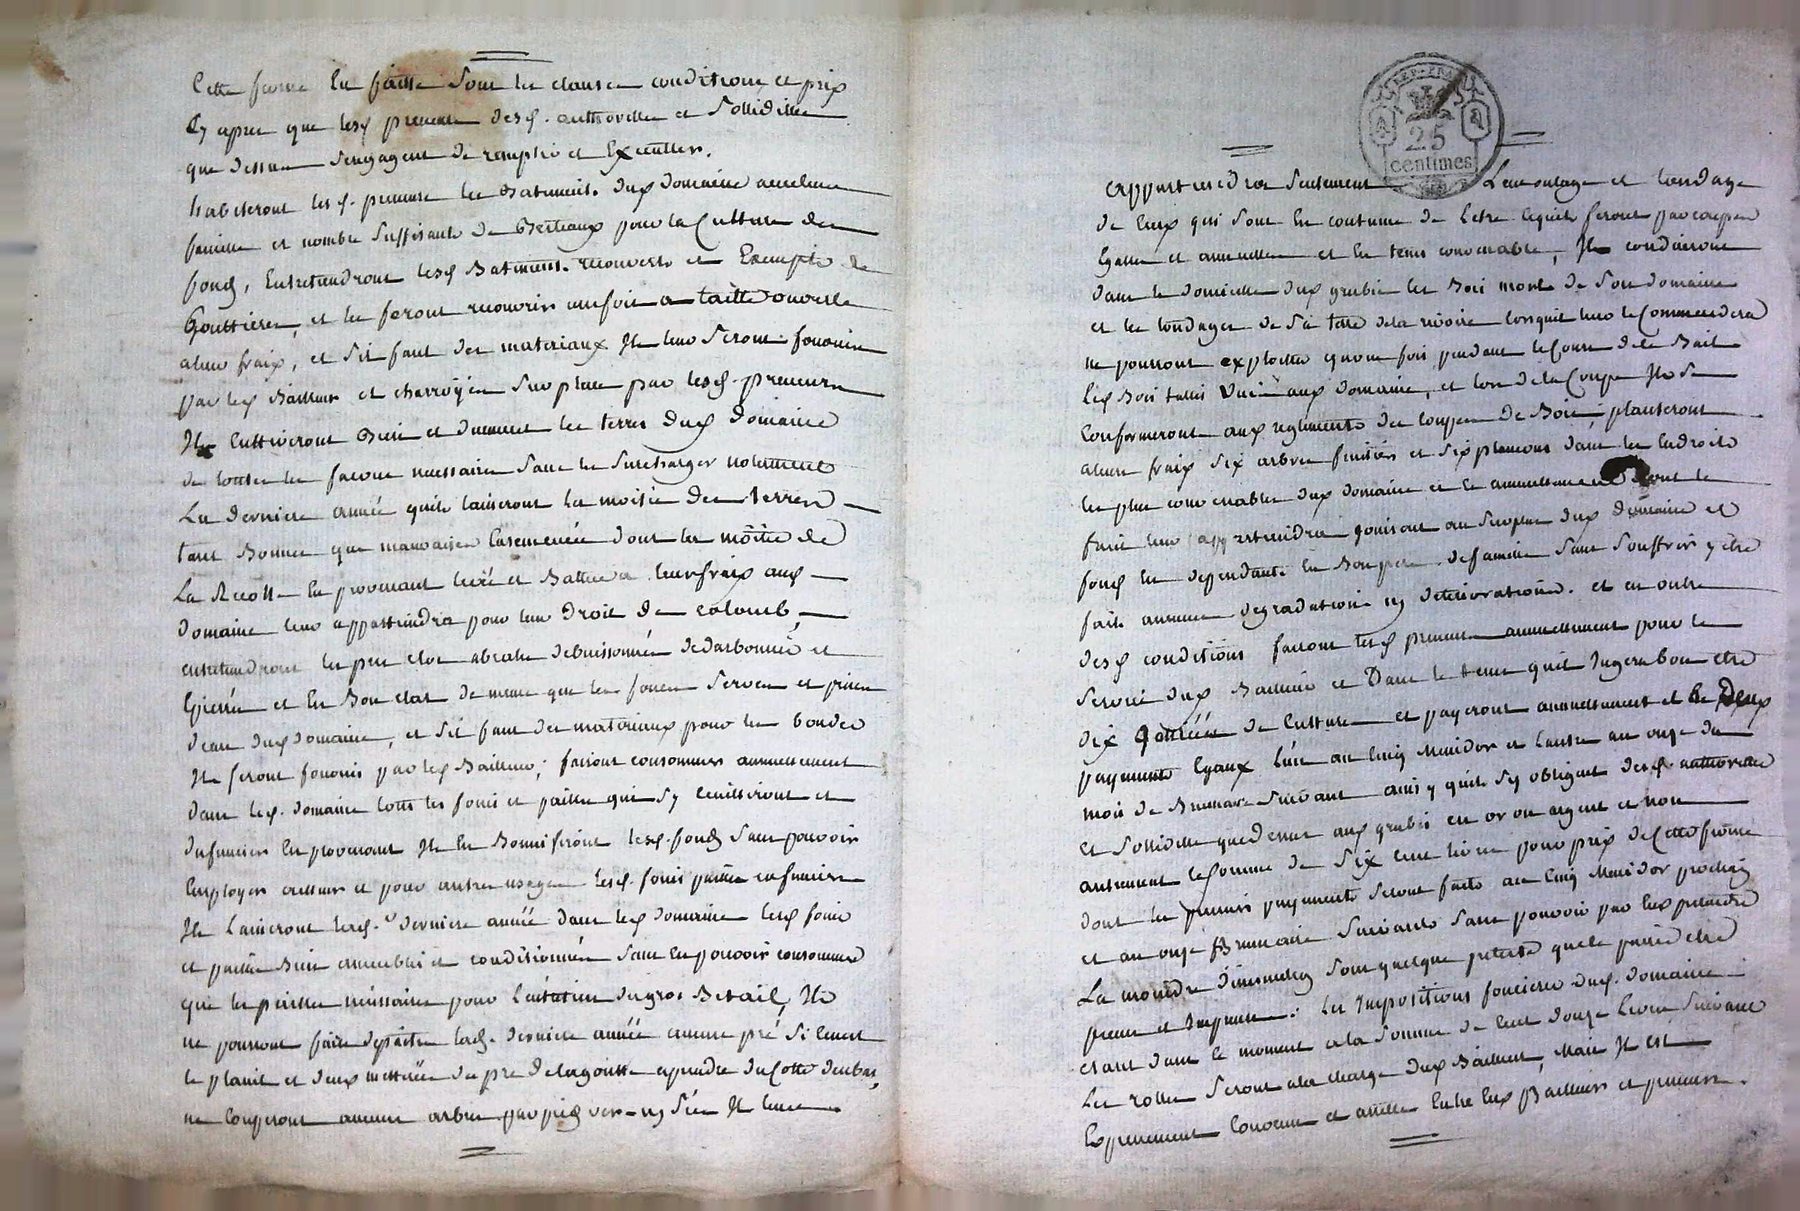 Cette ferme En faitte Sous les clauses conditions et prix
Cy apres que lesd preneurs desd. authorittes et Sollidittes
que dessus Sengagent de remplir et Executter.
habiteront lesd. preneurs les Batiments. dud domaine avec leur
famille et nombre Suffisants de Bestiaux pour la Culture des
fonds, Entretiendront lesd Batiments. recouverts et Exempts de
Gouttieres, et les feront recouvrir une fois a taille ouverte
a leur fraix, et Sil faut des materiaux Ils leur Seront fournis
par les Bailleurs et charroyés Sur place par lesd. preneurs
Ils Cultiveront Bien et duement les terres dud domaine
de touttes les façons necessaires Sans les Surcharger notemment
La derniere année quils laisseront la moitié des terres
tant Bonnes que mauvaises Ensemencées dont la moitié de
La Recolte En provenant levée et Battue a leur fraix aud
Domaine leur appartiendra pour leur Droit de colomb,
entretiendront les prés clos abralés debuissonnés dedarbonnés et
Epierrés et En Bon etat de meme que les fossés Serves et prises
deau dud domaine, et Sil faut des materiaux pour les bondes
Ils Seront fournis par les Bailleurs; fairont consommer annuellement
dans led. domaine tous les foins et pailles qui Sy Ceuilliront et
du fumier En provenant Ils En Bonnifiront lesd. fonds Sans pouvoir
Employer ailleurs et pour autres usages lesd. foins pailles et fumiers
Ils Laisseront lad. derniere année dans led domaine lesd foins
et pailles Bien et conditionnés Sans En pouvoir consommer
que les pailles necessaires pour L'entretien du gros Betail, Ils
ne pourront faire depaitre lad. derniere année aucuns prés Si cenest
le planit et deux metterées du pré delagoutte aprendre du Cotté den bas,
ne Couperont aucuns arbres par pied vers ny Secs Il leur
appartiendra Seulement Lemontage et tondage
de Ceux qui Sont En coutume de Letre lequels Seront par coupes
Egalles et annuelles et En tems convenable, Ils conduiront
dans le domicille dud grubis les Bois morts de Son domaine
et les tondages de Sa terre dela rivoire lorsquil leur le Commendera
ne pourront exploitter quune fois pendant le Cours dele Bail
Les Bois taillis aud domaine, et lors dela Coupe Ils Se
Conformeront aux reglements des Couppes de Bois, planteront
a leurs fraix Six arbres fruitiers et Six plançons dans les Endroits
les plus convenables dud domaine et ce annuellement dont le
fruit leur appartiendra Jouiront au Surplus dud domaine et
fonds En dependants En Bon pere de famille Sans Souffrir y etre
fait aucunes degradations ny deteriorations. et en outre
desd conditions fairont lesd preneurs annuellement pour le
Service dud Bailleur et Dans le tems quil Jugera bon etre
dix Journées de Culture et payeront annuellement et En deux
payements Egaux Lun au Cinq Messidor et Lautre au onze du
mois de Brumaire Suivant ainsy quils Sy obligent desd. authorités
et Sollidittes que dessus aud grubis en or ou argent et non
autrement la Somme de Six cent livres pour prix de Cette ferme
dont les premiers payements Seront faits au Cinq Messidor prochain
et au onze Brumaire Suivants Sans pouvoir par Eux pretendre
La moindre diminution Sous quelque pretexte que ce puisse etre
preveu et Impreveu: Les Impositions foncieres dud. domaine
etant dans le moment a la Somme de Cent douze Livres Suivant
Les rolles Seront ala charge dud Bailleur, Mais Il est
Expressement Convenu et arretté Entre Eux Bailleurs et preneurs.
REP. FRA.
25
centimes